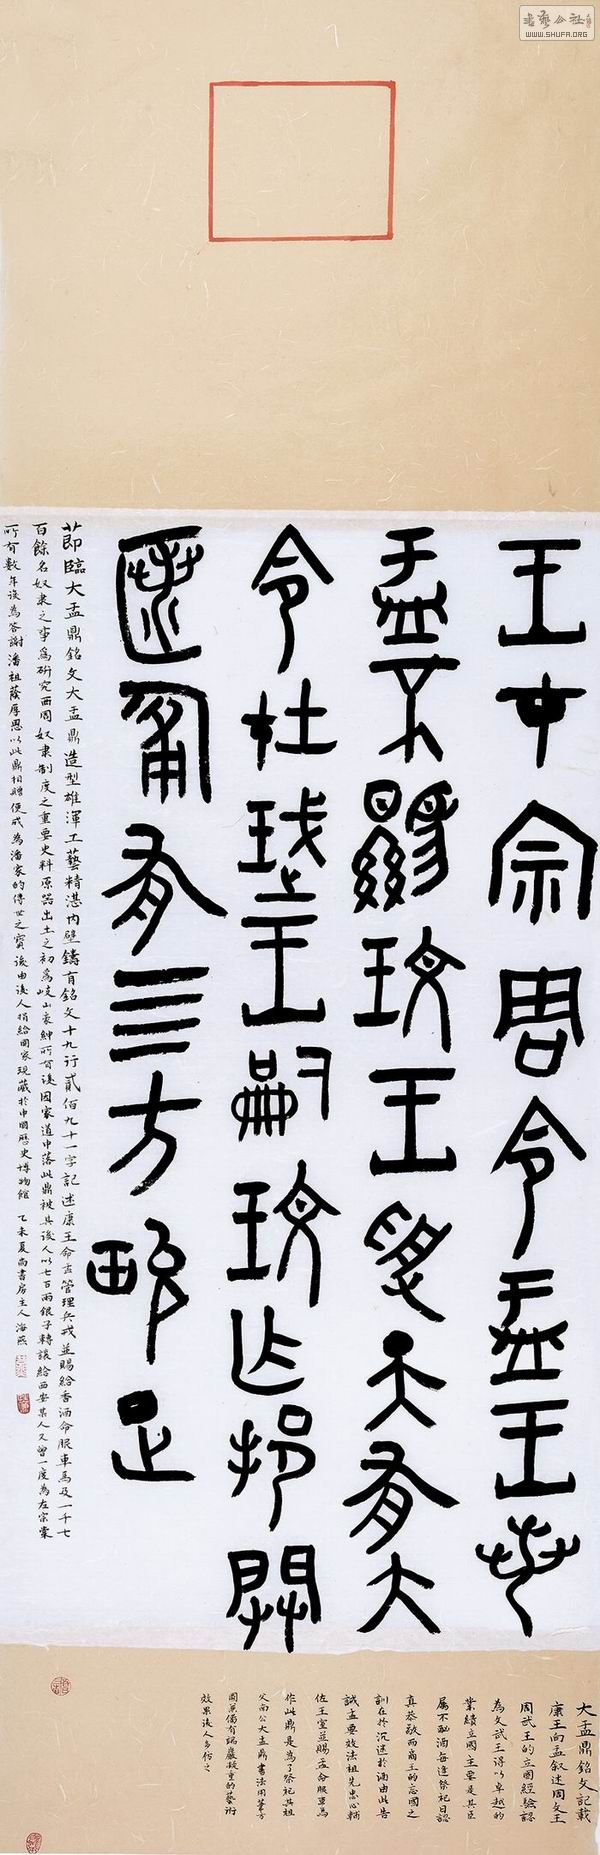 書藝公社
WWW.SHUFA.ORG
王才宗周令盂王若
盂不顯玟王受天有大
令在珷王嗣玟乍邦闢
匿匍有三方畯正
節臨大盂鼎銘文大盂鼎造型雄渾工藝精湛内壁鑄有銘文十九行貳佰九十一字記述康王命盂管理兵戎並賜給香酒命服車馬及一千七
百餘名奴隶之事為研究西周奴隶制度之重要史料原器出土之初為岐山豪紳所有後因家道中落此鼎被其後人以七百兩銀子轉讓給西安某人又曾一度為左宗棠
所有數年後為答謝潘祖蔭厚恩以此鼎相贈便成為潘家的傳世之寶後由後人捐給國家現藏於中國歷史博物館 乙未夏尚書房主人海燕
大盂鼎銘文記載
康王向盂叙述周文王
周武王的立國經驗認
為文武王得以卓越的
業績立國主要是其臣
属不酗酒每逢祭祀日認
真恭敬而商王的亡國之
訓在於沉迷於酒由此告
誡盂要效法祖先忠心輔
佐王室並賜盂命服車馬
作此鼎是為了祭祀其祖
父南公大盂鼎書法用筆方
圓兼備有端嚴凝重的藝術
效果後人多仿之